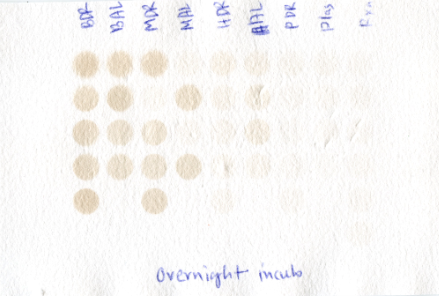 BDR BAL MDR MAL HDR HAL PDR Plas Rxn
Overnight incub